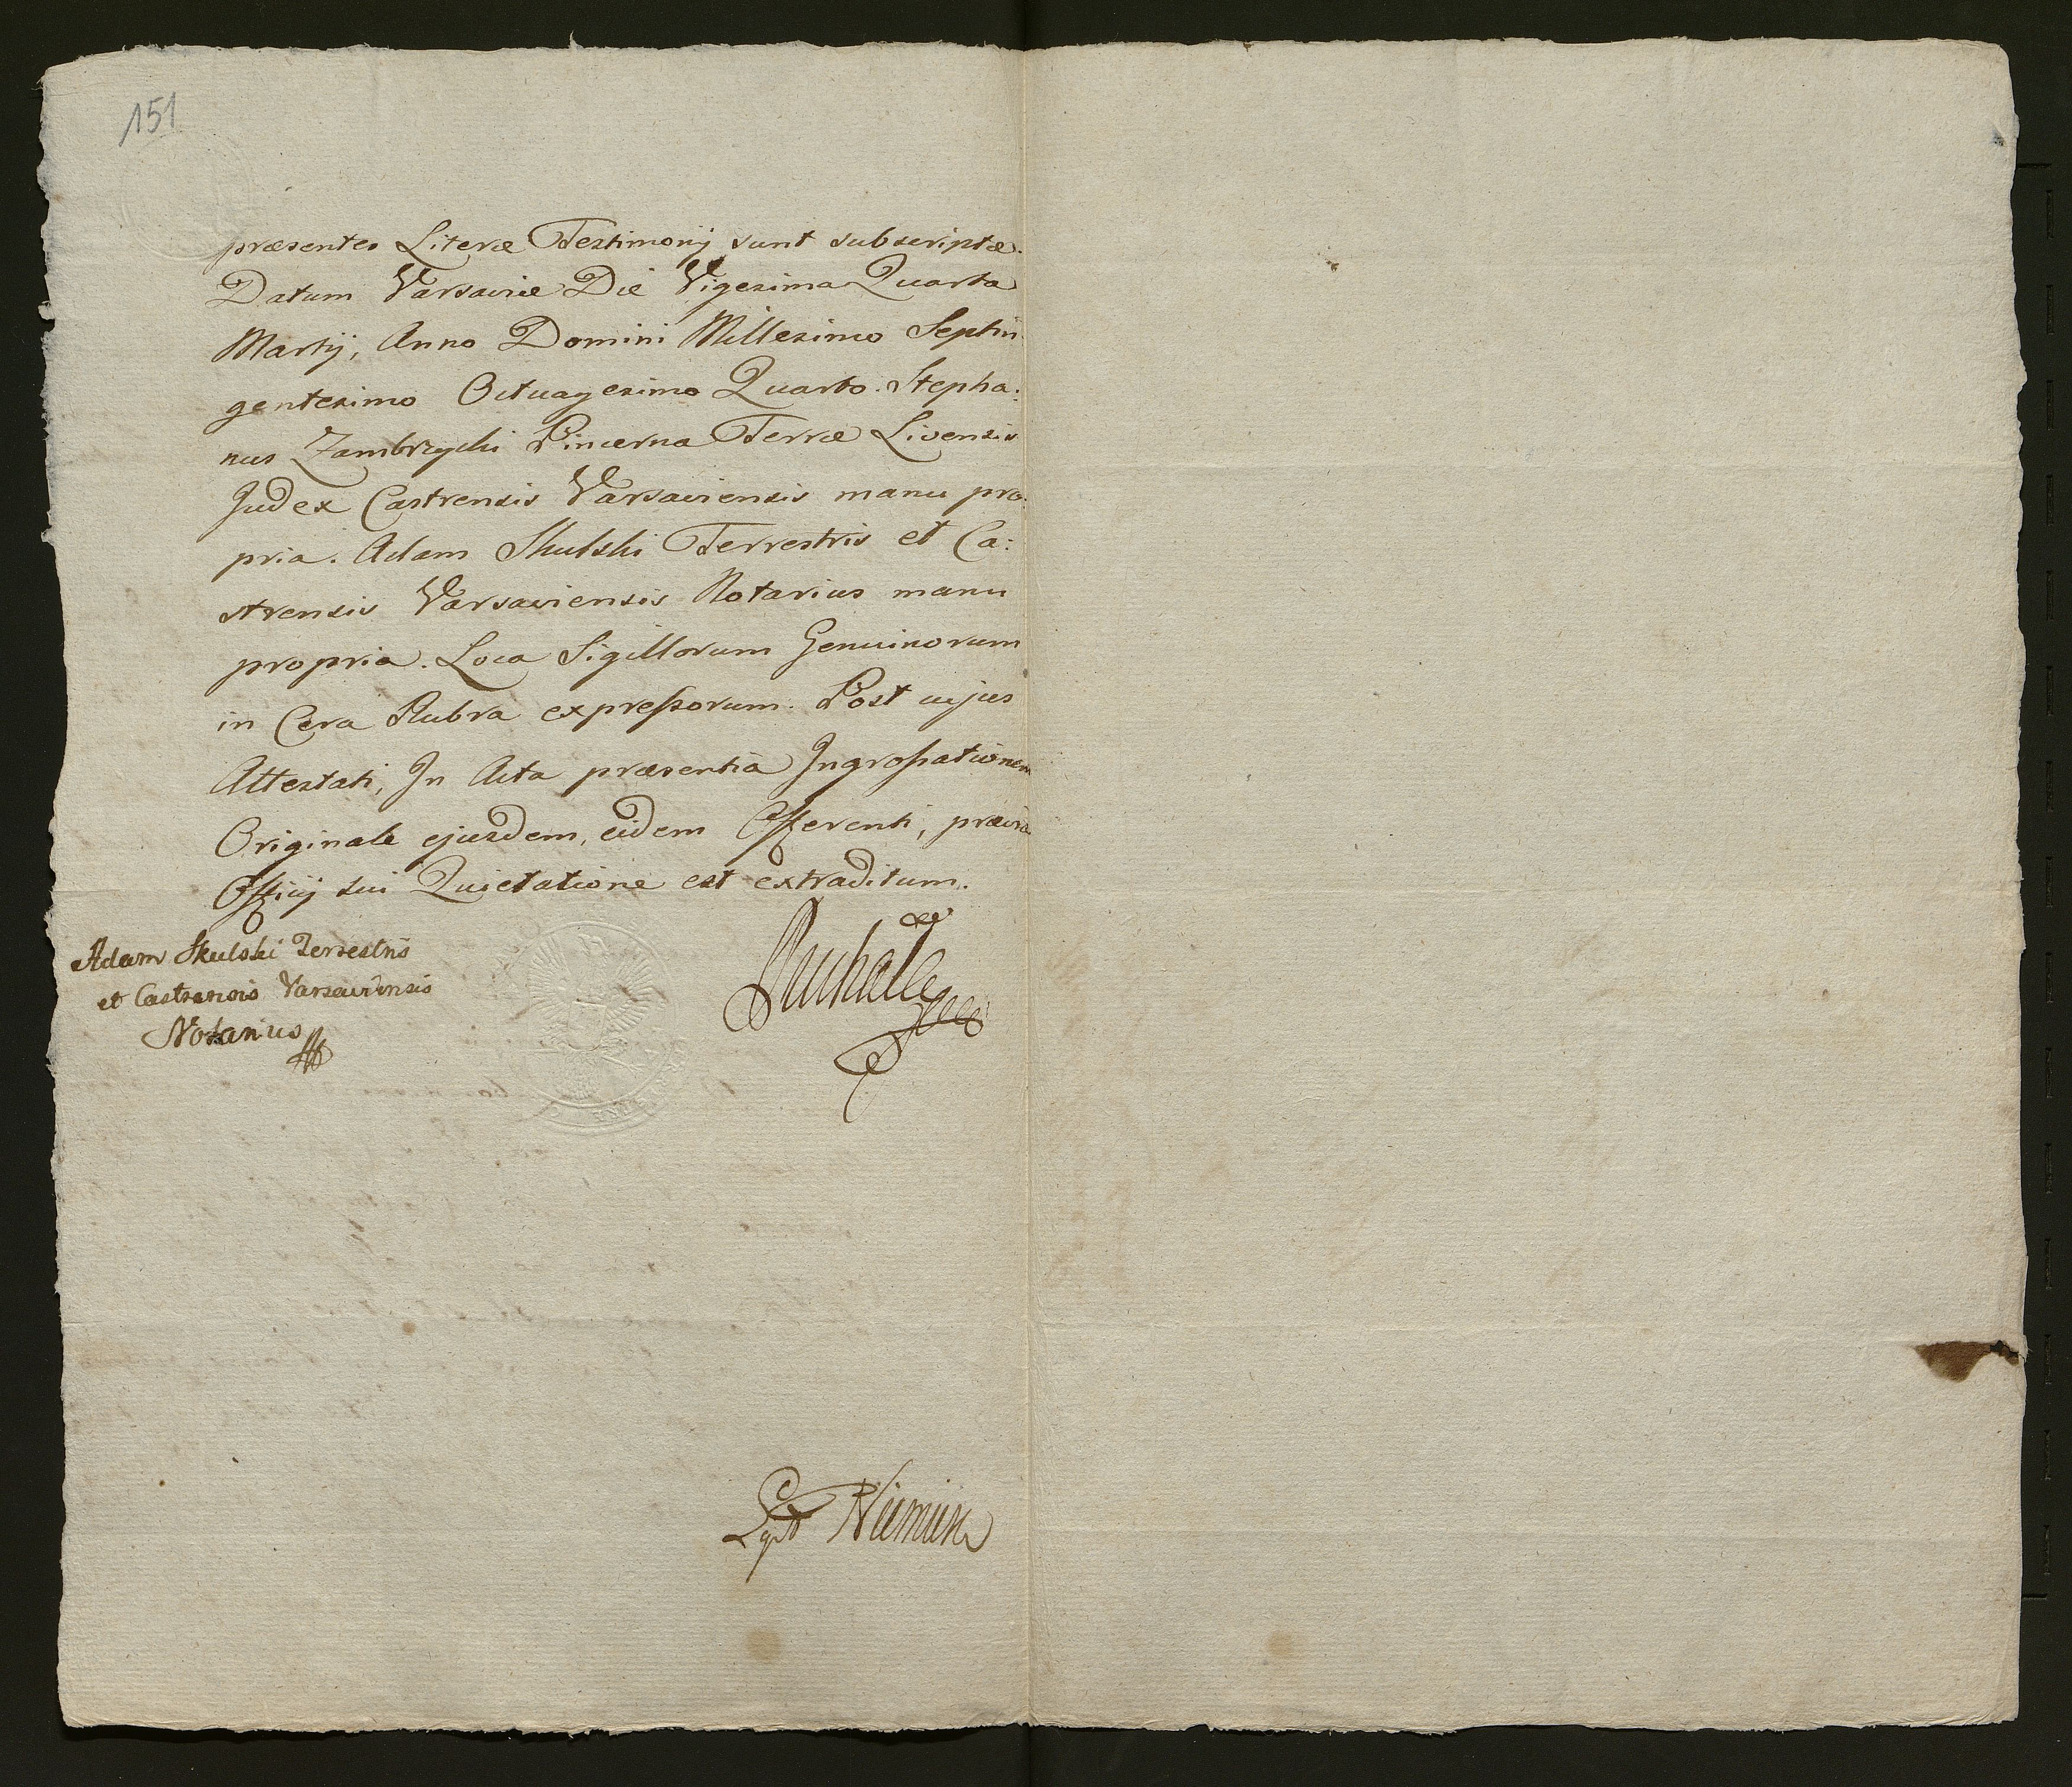 151
præsentes Literæ Testimonij sunt subscriptæ.
Datum Varsaviæ Die Vigesima Quarta
Martij, Anno Domini Millesimo Septin
gentesimo Octuagesimo Quarto. Stepha:
nus Zambrzycki Pincerna Terræ Livensis
Judex Castrensis Varsaviensis manu pro:
pria. Adam Skulski Terrestris et Ca:
strensis Varsaviensis Notarius manu
propria. Loca Sigillorum Genuinorum
in Cera Rubra expressorum. Post cujus
Attestati, In Acta præsentia Ingrossationem
Originale ejusdem, eidem Offerenti, prævia
Officij sui Quietatione est extraditum.
Adam Skulski Terrestris
et Castrensis Varsaviensis
Notarius